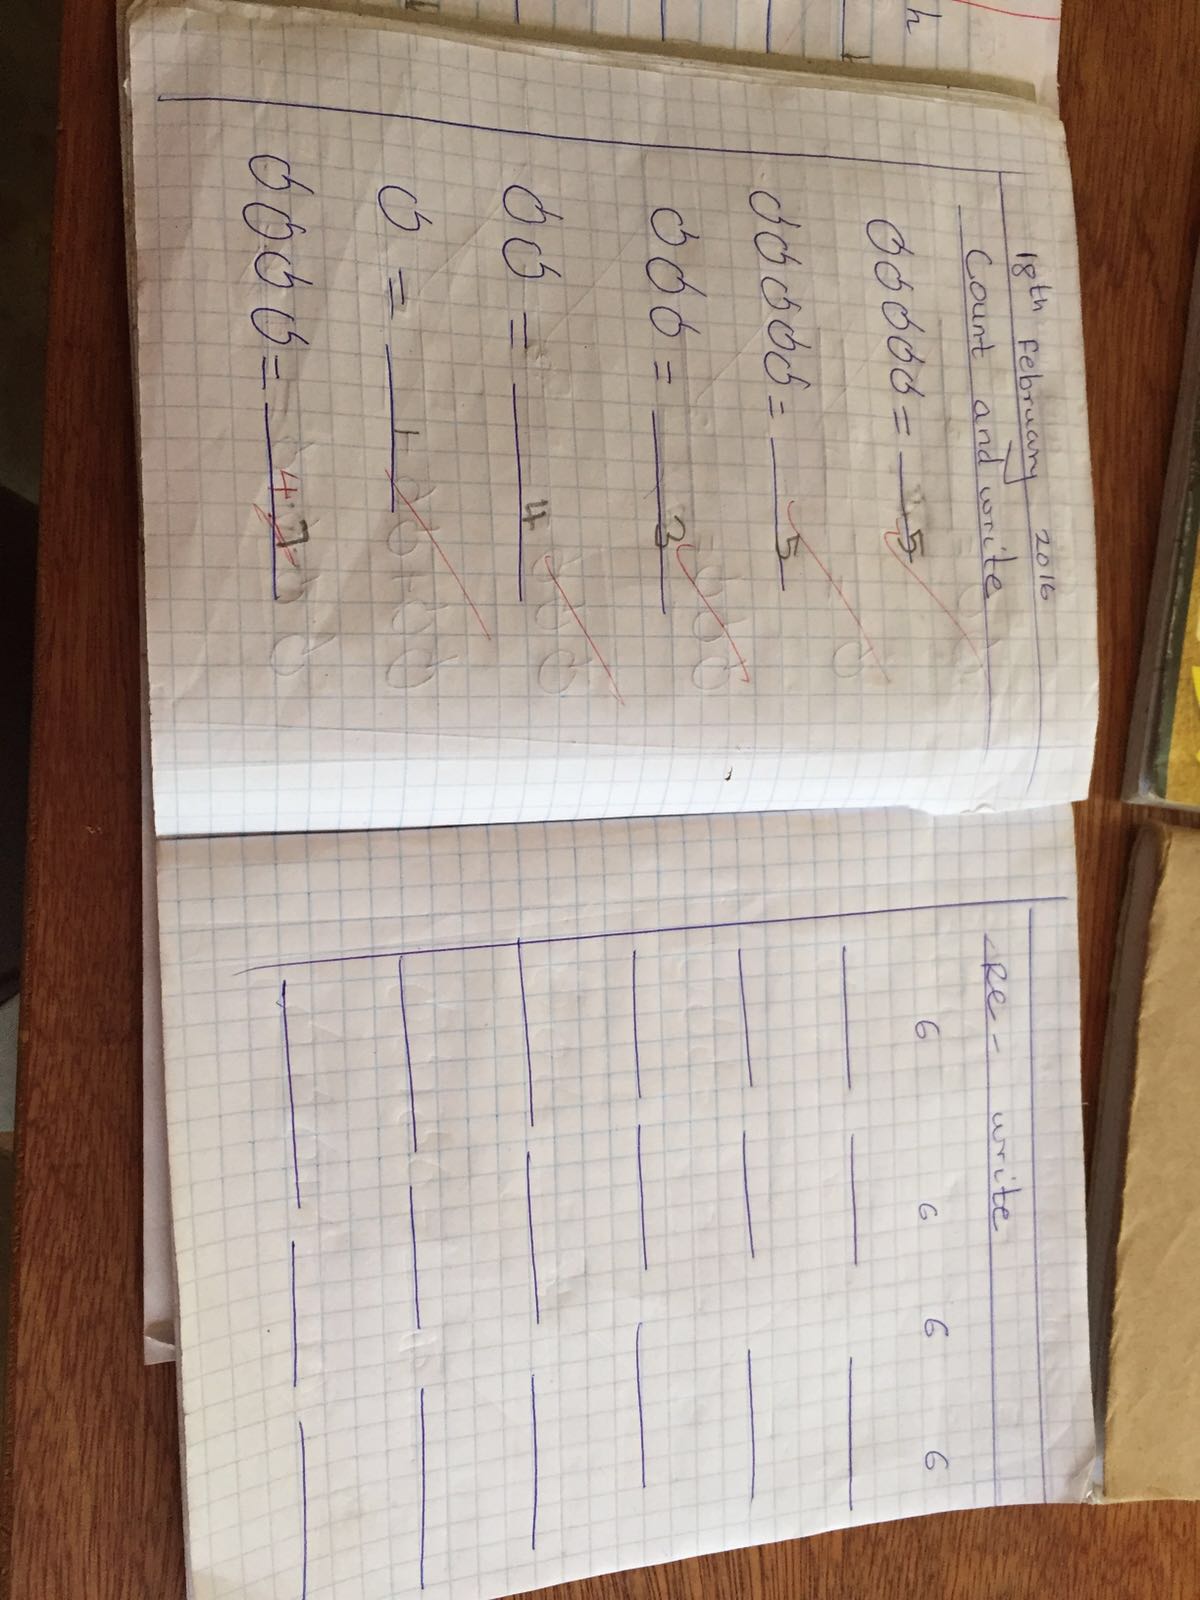 h
18th February 2016
Count and write
= 5
= 5
= 3
= 4
= 1
= 4 7
Re- write
6 6 6 6